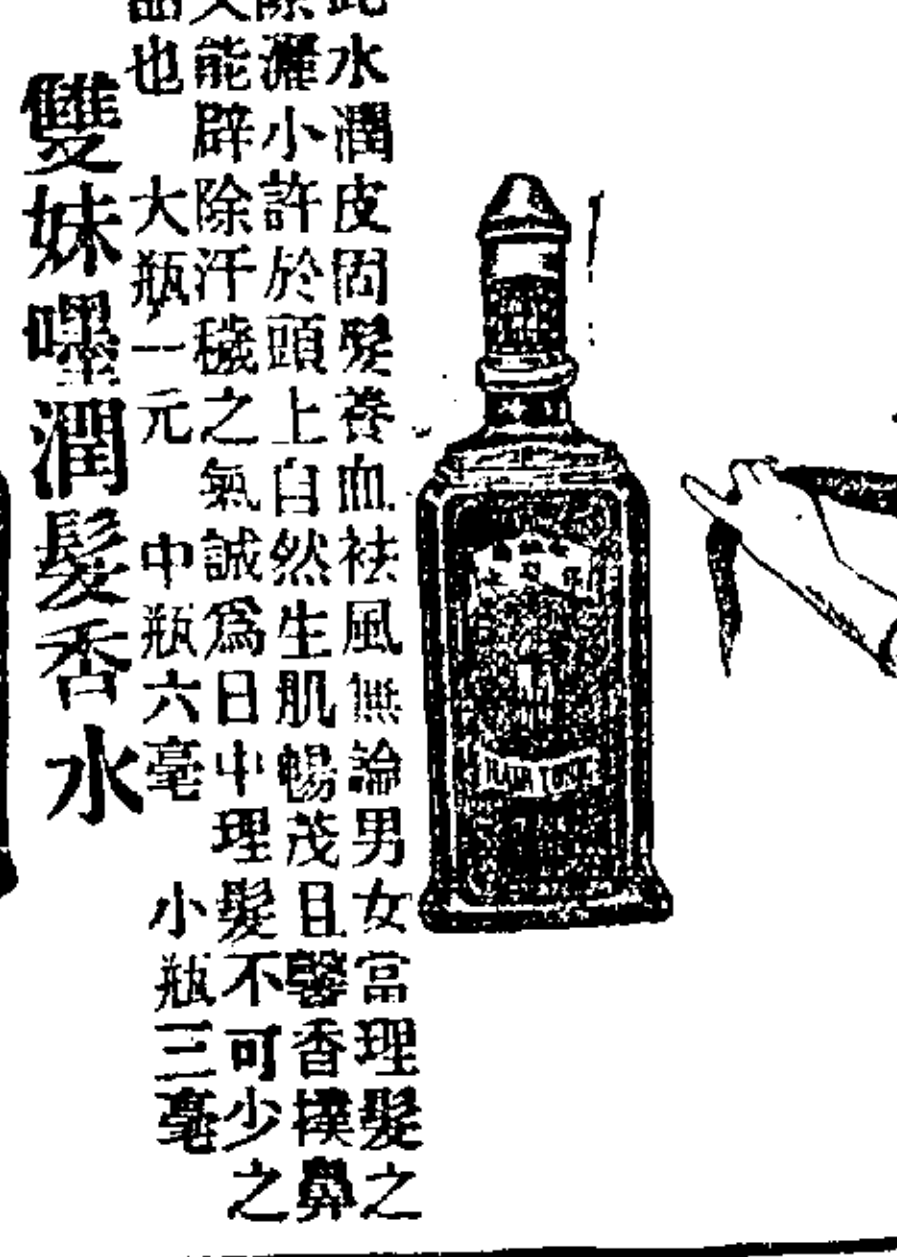 此水潤皮固髮養血祛風無論男女當理髮之
際灑小許於頭上自然生肌暢茂且馨香撲鼻
又能辟除汗穢之氣誠爲日中理髮不可少之
品也 大瓶一元 中瓶六毫 小瓶三毫
雙妹嚜潤髮香水
HAIR TONIC